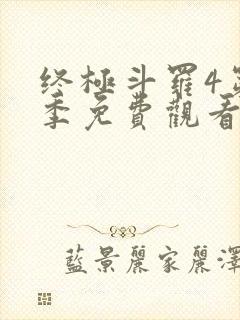 终極斗羅4
季免費觀看
藍景麗家麗澤